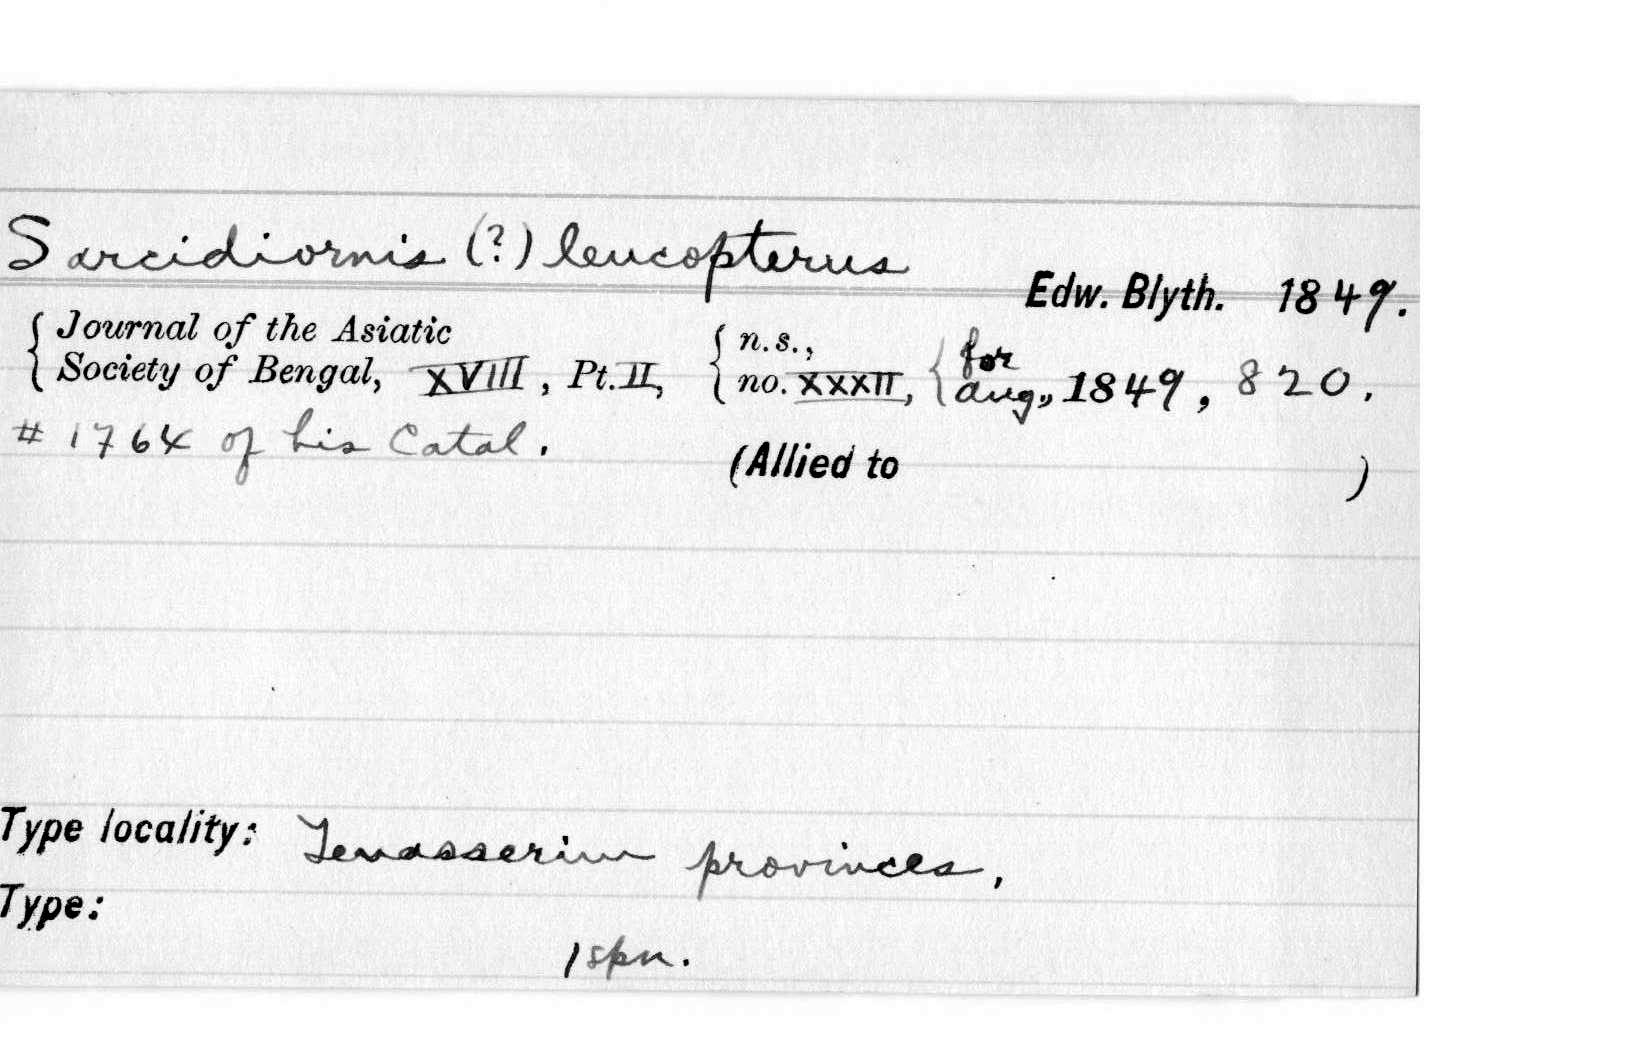 Sarcidiornis (?) leucopterus
Edw. Blyth. 1849.
{ Journal of the Asiatic { n.s., { for
Society of Bengal, XVIII, Pt. II, no. XXXII, Aug., 1849, 820.
# 1764 of his Catal.
(Allied to )
Type locality: Tenasserim provinces,
Type:
1 spn.